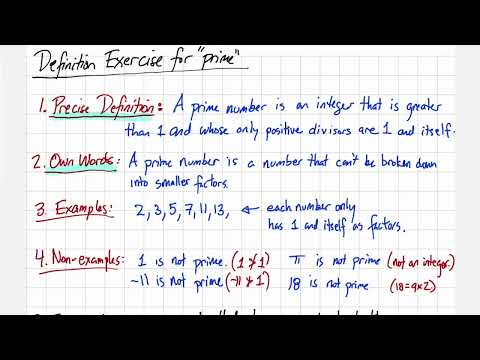 Definition Exercise for "prime"
1. Precise Definition: A prime number is an integer that is greater
than 1 and whose only positive divisors are 1 and itself.
2. Own Words: A prime number is a number that can't be broken down
into smaller factors.
3. Examples: 2, 3, 5, 7, 11, 13, ← each number only
has 1 and itself as factors.
4. Non-examples: 1 is not prime. (1 ≯ 1) π is not prime (not an integer)
-11 is not prime (-11 ≯ 1) 18 is not prime (18=9×2)